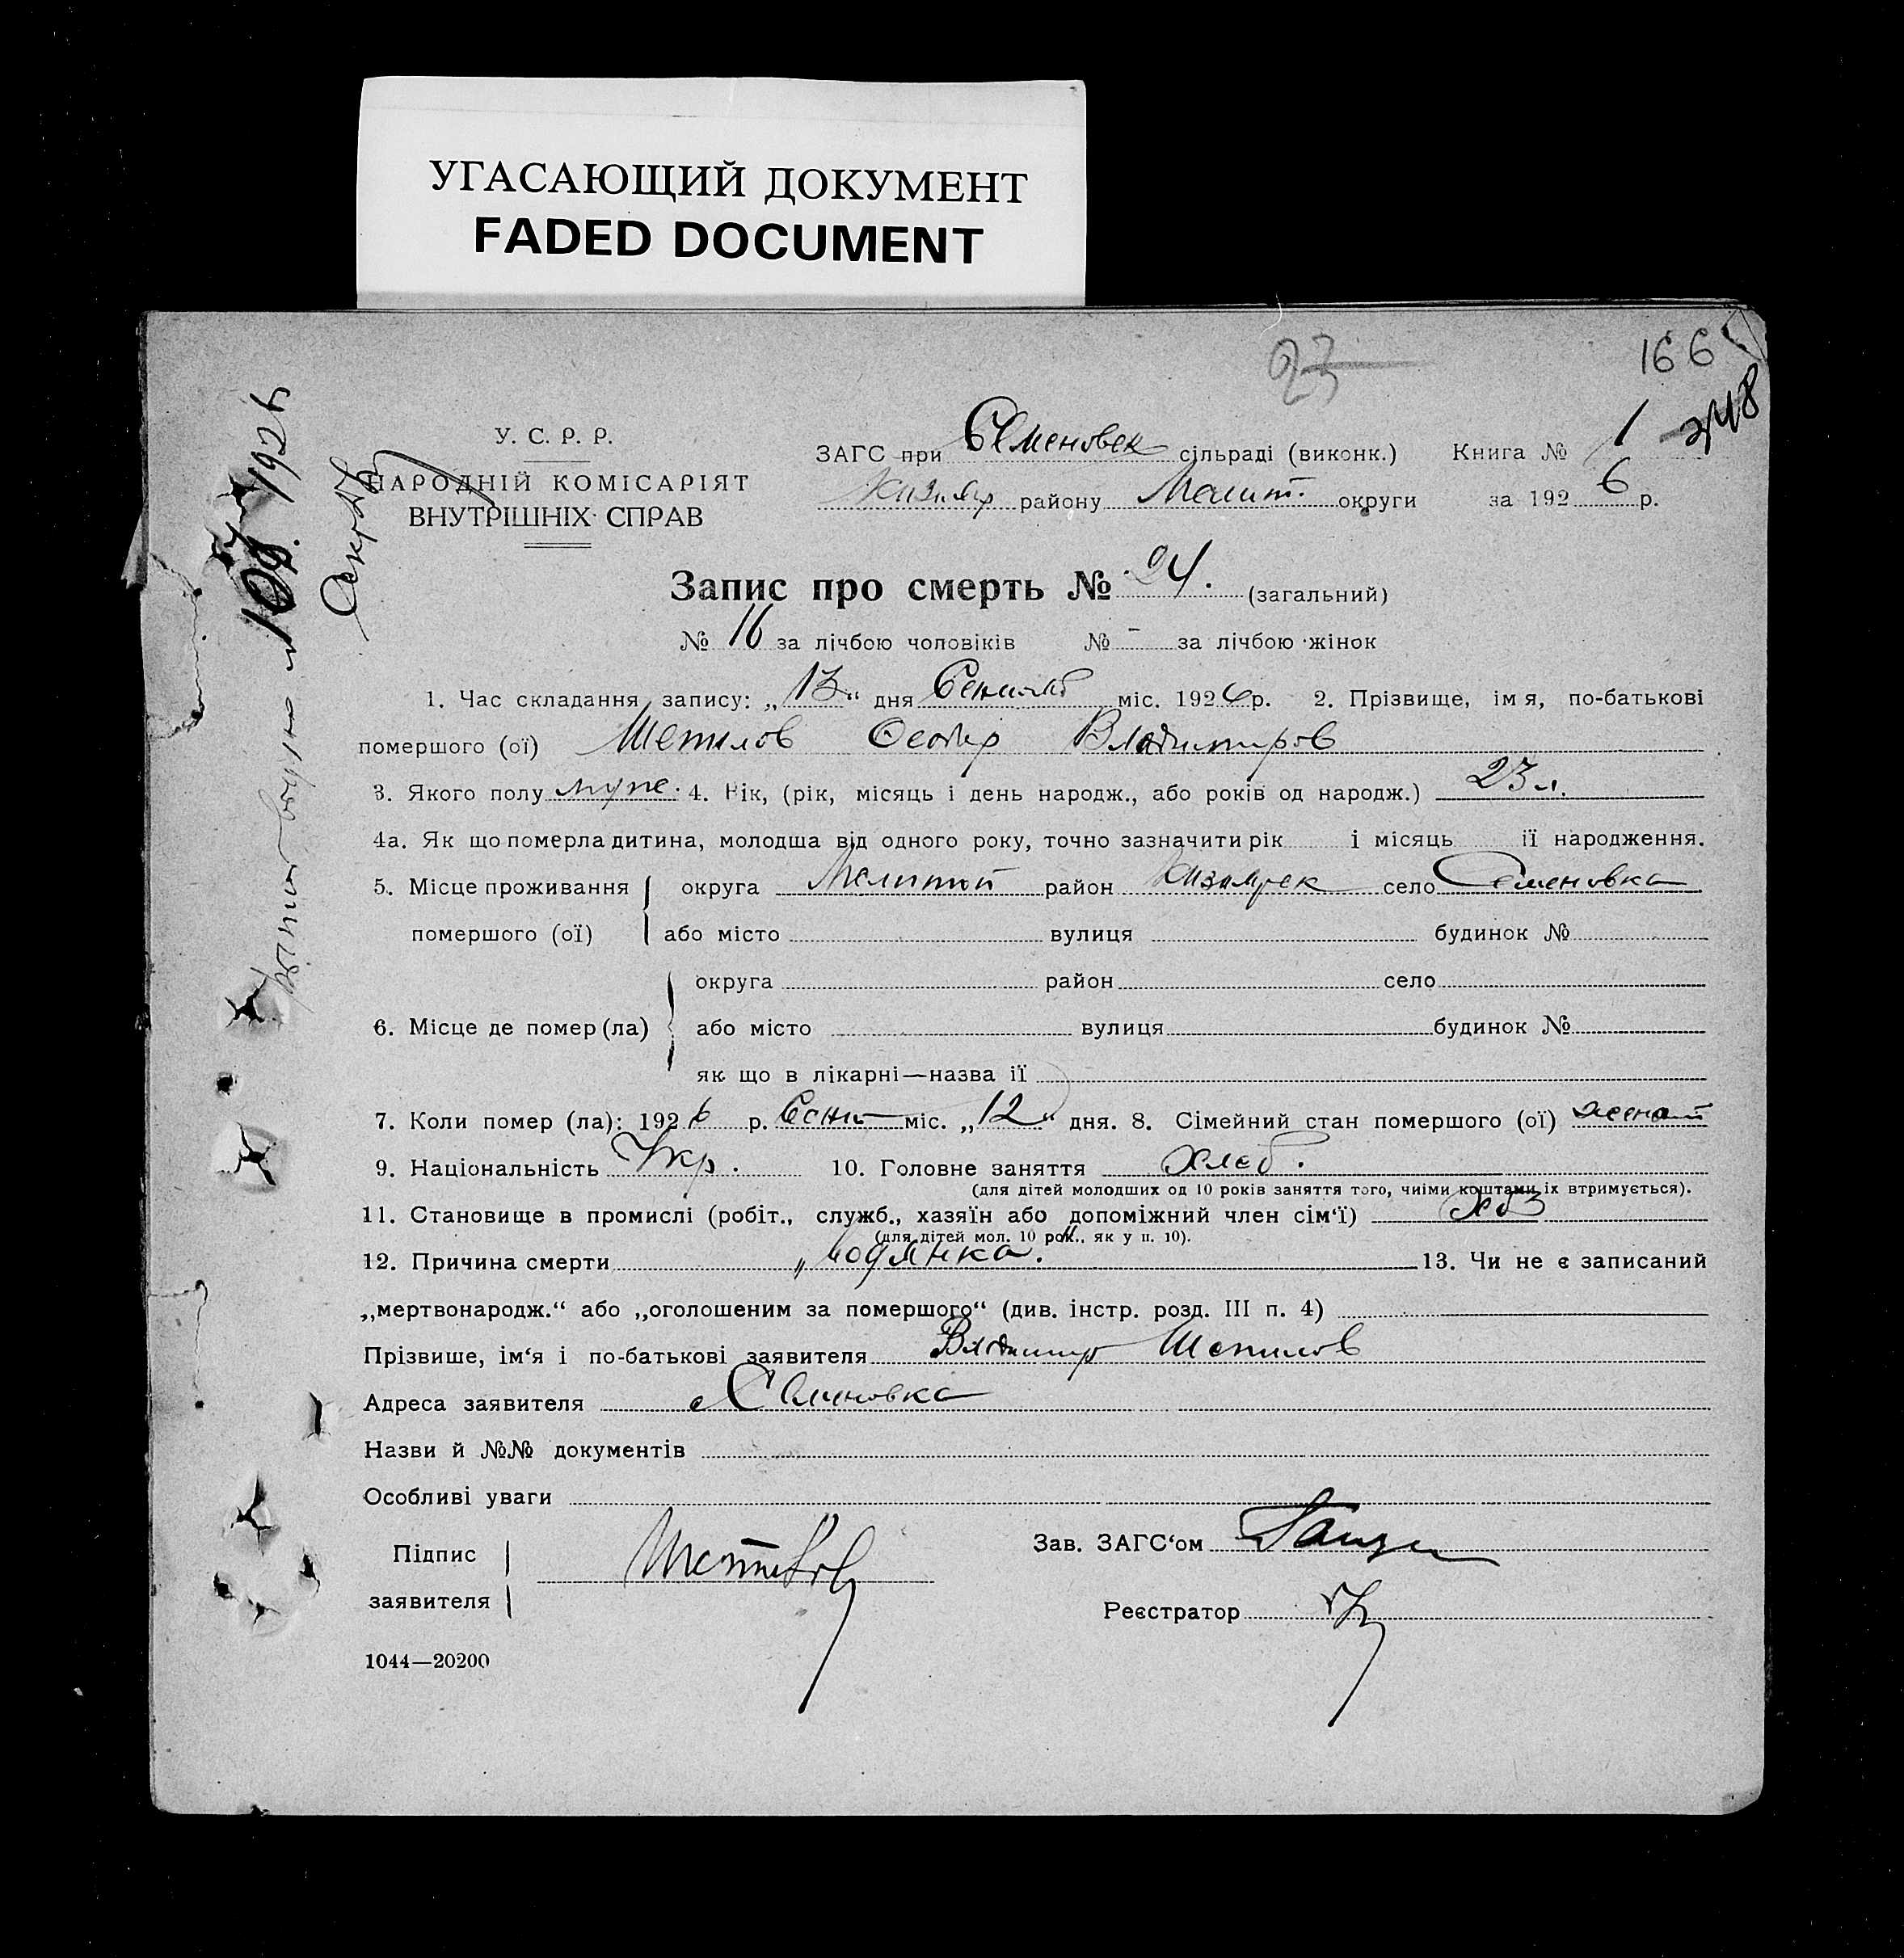 УГАСАЮЩИЙ ДОКУМЕНТ
FADED DOCUMENT
23
166
248
У. С. Р. Р.
НАРОДНІЙ КОМІСАРІЯТ
ВНУТРІШНІХ СПРАВ
ЗАГС при Семеновск сільраді (виконк.) Книга № 1
району Мелит. округи за 1926 р.
Запис про смерть № 24. (загальний)
№ 16 за лічбою чоловіків № - за лічбою жінок
1. Час складання запису: „13“ дня міс. 1926 р. 2. Прізвище, імя, по-батькові
помершого (ої) Шепилов Владимиров
3. Якого полу муж. 4. Вік, (рік, місяць і день народж., або років од народж.) 23 л.
4а. Як що померла дитина, молодша від одного року, точно зазначити рік і місяць її народження.
5. Місце проживання округа район село Семеновка
помершого (ої) або місто вулиця будинок №
округа район село
6. Місце де помер (ла) або місто вулиця будинок №
як що в лікарні—назва її
7. Коли помер (ла): 1926 р. Сент міс. „12“ дня. 8. Сімейний стан помершого (ої) женат
9. Національність Укр. 10. Головне заняття хлеб.
(для дітей молодших од 10 років заняття того, чиїми коштами їх втримується).
11. Становище в промислі (робіт., служб., хазяїн або допоміжний член сім‘ї)
(для дітей мол. 10 рок., як у п. 10).
12. Причина смерти 13. Чи не є записаний
„мертвонародж.“ або „оголошеним за помершого“ (див. інстр. розд. III п. 4)
Прізвище, ім‘я і по-батькові заявителя Владимир Шепилов
Адреса заявителя с Семеновка
Назви й №№ документів
Особливі уваги
Підпис
заявителя
Зав. ЗАГС‘ом
Реєстратор
1044—20200